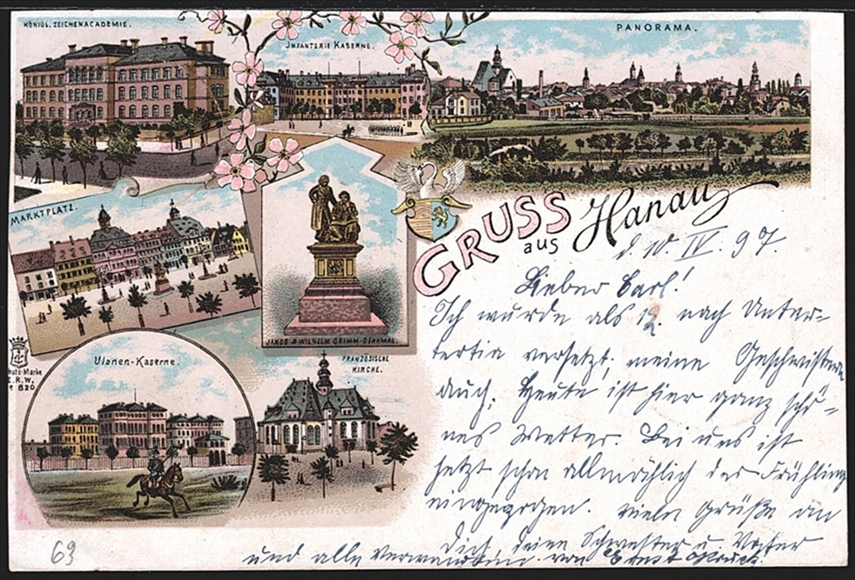 KÖNIGL. ZEICHENACADEMIE.
INFANTERIE KASERNE.
PANORAMA.
MARKTPLATZ.
GRUSS aus Hanau
JAKOB & WILHELM GRIMM-DENKMAL.
Ulanen-Kaserne.
FRANZÖSISCHE
KIRCHE.
Schutz-Marke
C.R.W.
820
d. 10. IV. 97.
Lieber Carl!
Ich wurde als 12. nach Unter-
tertia versetzt, meine Geschwister
auch. Heute ist hier ganz schö-
nes Wetter. Bei uns ist
jetzt schon allmählich der Frühling
eingezogen. Viele Grüße an
Dich, deine Schwester u. Vater
und alle Verwandten von Ernst
69